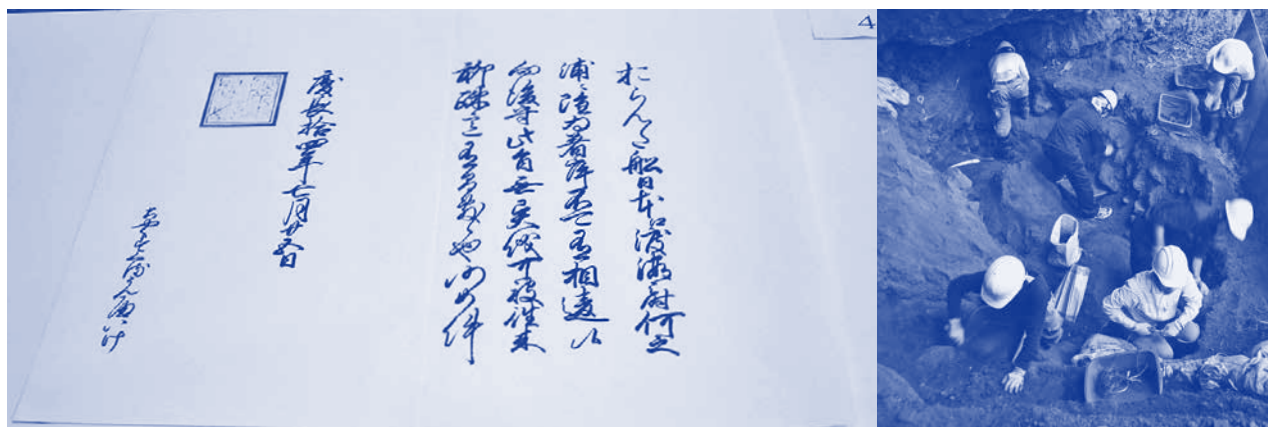 4
おらんた船日本江渡海之時何之
浦ニ雖為着岸不可有相違候
向後守此旨無異儀可被往来
聊疎意有間敷候也仍如件
慶長拾四年七月廿五日